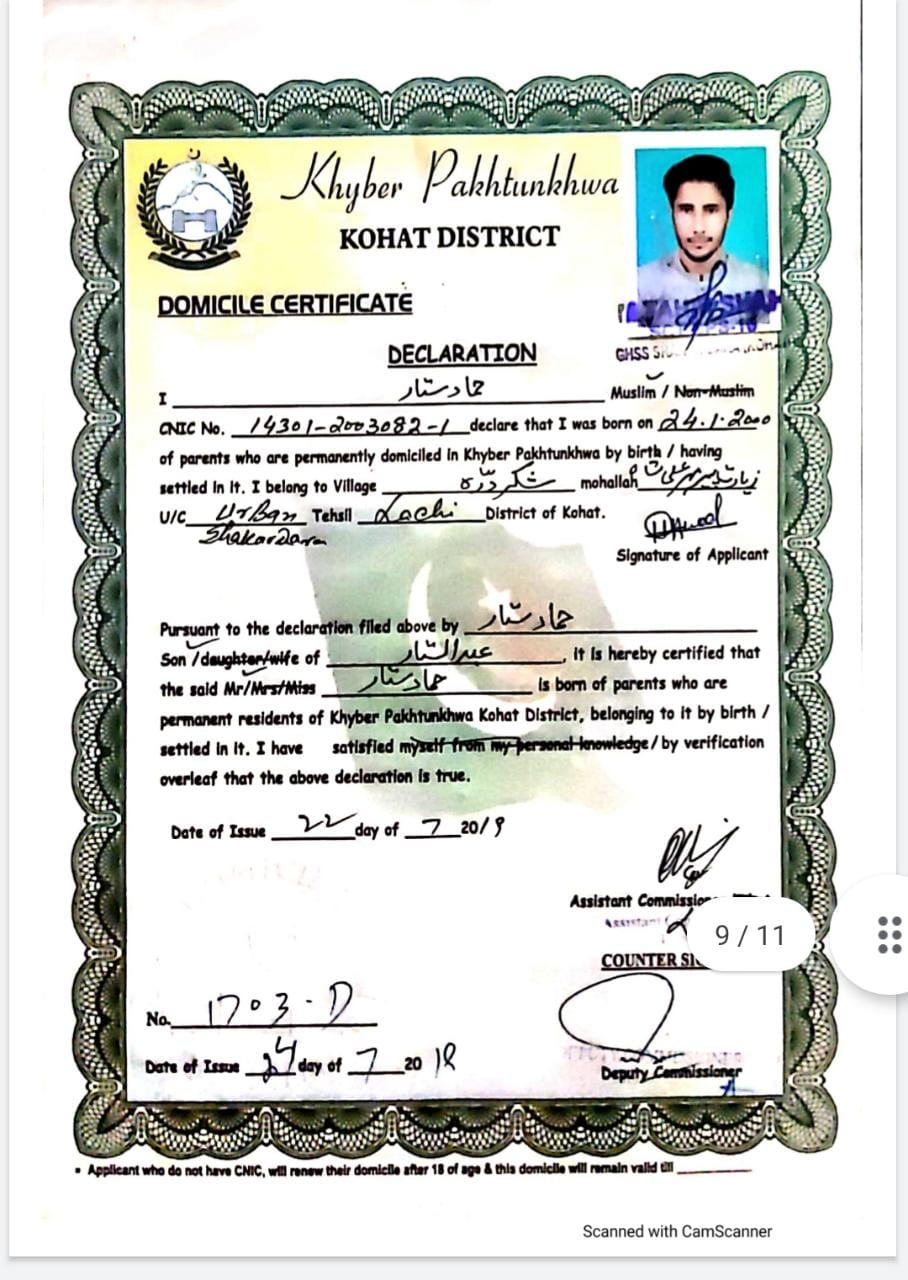 Khyber Pakhtunkhwa
KOHAT DISTRICT
DOMICILE CERTIFICATE
DECLARATION
GHSS
I حماد ستار Muslim / Non-Muslim
CNIC No. 14301-2003082-1 declare that I was born on 24.1.2000
of parents who are permanently domiciled in Khyber Pakhtunkhwa by birth / having
settled in it. I belong to Village شکر درّہ mohallah
U/C Urban Tehsil Lachi District of Kohat.
Shakardara
Signature of Applicant
Pursuant to the declaration filed above by حماد ستار
Son / daughter/wife of عبدالستار, it is hereby certified that
the said Mr/Mrs/Miss حماد ستار is born of parents who are
permanent residents of Khyber Pakhtunkhwa Kohat District, belonging to it by birth /
settled in it. I have satisfied myself from my personal knowledge / by verification
overleaf that the above declaration is true.
Date of Issue 22 day of 7 2019
Assistant Commissio
Assistant
9 / 11
COUNTER SI
No. 1703-D
Date of Issue 24 day of 7 20
Deputy Commissioner
• Applicant who do not have CNIC, will renew their domicile after 18 of age & this domicile will remain valid till
Scanned with CamScanner